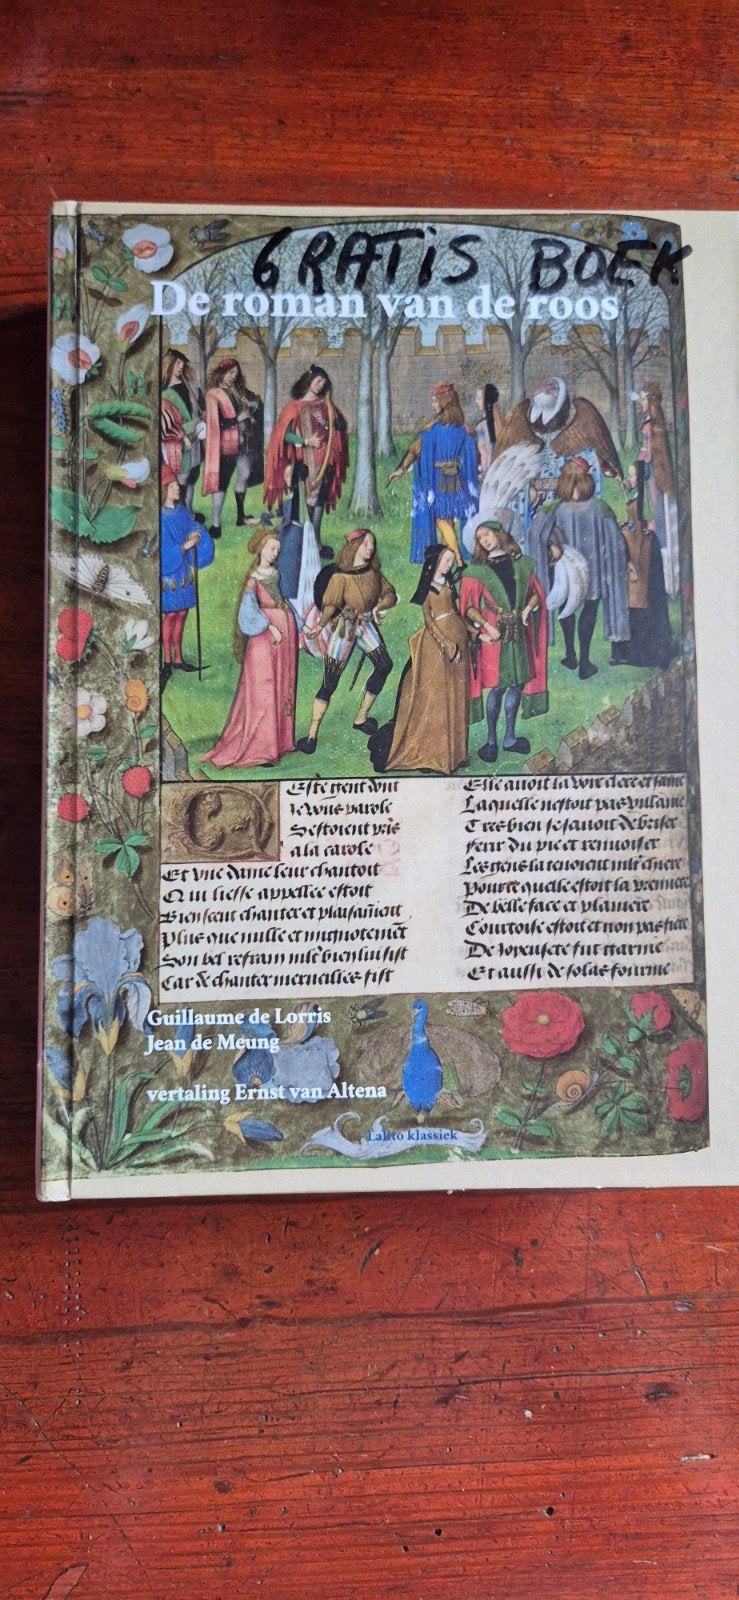 GRATIS BOEK
De roman van de roos
Ceste gent dont
Je vous parole
Sestoient pris
a la carole
Et une dame leur chantoit
Qui liesse appellee estoit
Bien sceut chanter et plaisãment
Plus que nulle et mignotemẽt
Son bel refrain mlt̃ bien lui sist
Car de chanter merveilles fist
Elle avoit la voix clere et saine
Laquelle nestoit pas vilaine
Tres bien se savoit debriser
Ferir du pie et renvoiser
Les gens la tenoient mlt̃ chiere
Pource quelle estoit la premiere
De belle face et planiere
Courtoise estoit et non pas fiere
De Joyeusete fut
Et aussi de solas fourme
Guillaume de Lorris
Jean de Meung
vertaling Ernst van Altena
Lalito klassiek